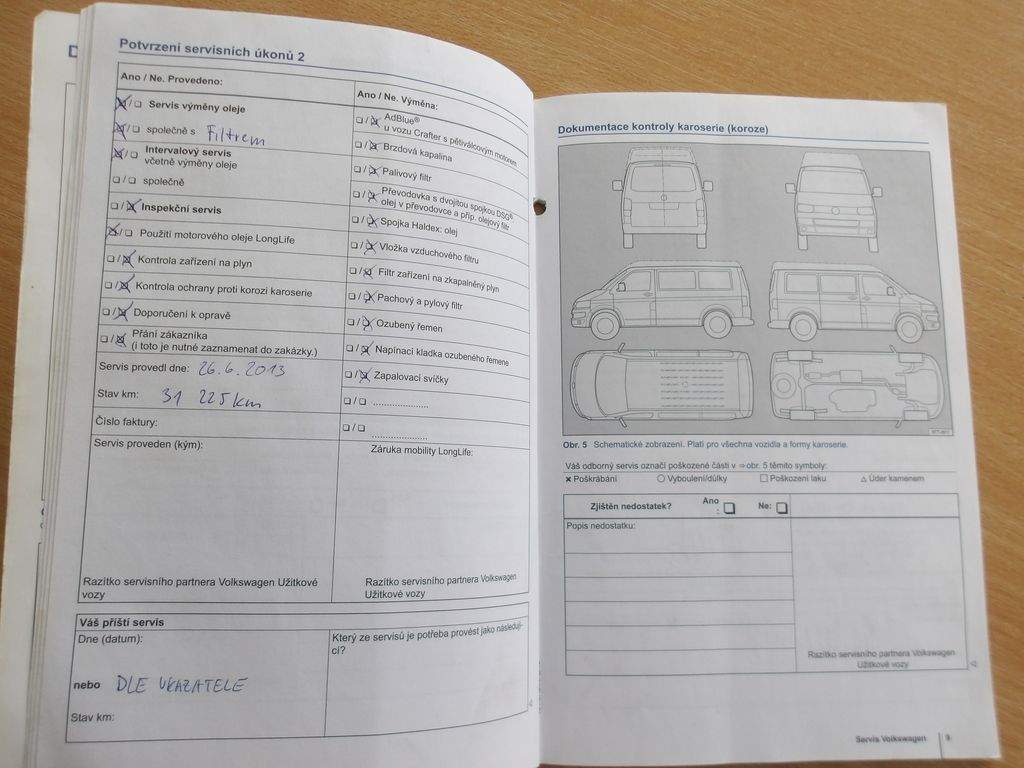 Potvrzení servisních úkonů 2
Ano / Ne. Provedeno:
☒/☐ Servis výměny oleje
☒/☐ společně s Filtrem
☒/☐ Intervalový servis
včetně výměny oleje
☐/☐ společně
☐/☒ Inspekční servis
☒/☐ Použití motorového oleje LongLife
☐/☒ Kontrola zařízení na plyn
☐/☒ Kontrola ochrany proti korozi karoserie
☐/☒ Doporučení k opravě
☐/☒ Přání zákazníka
(i toto je nutné zaznamenat do zakázky.)
Servis provedl dne: 26.6.2013
Stav km: 31 225 km
Číslo faktury:
Servis proveden (kým):
Razítko servisního partnera Volkswagen Užitkové
vozy
Ano / Ne. Výměna:
☐/☒ AdBlue®
u vozu Crafter s pětiválcovým motorem
☐/☒ Brzdová kapalina
☐/☒ Palivový filtr
☐/☒ Převodovka s dvojitou spojkou DSG®
olej v převodovce a příp. olejový filtr
☐/☒ Spojka Haldex: olej
☐/☒ Vložka vzduchového filtru
☐/☒ Filtr zařízení na zkapalněný plyn
☐/☒ Pachový a pylový filtr
☐/☒ Ozubený řemen
☐/☒ Napínací kladka ozubeného řemene
☐/☒ Zapalovací svíčky
☐/☐ ....................
☐/☐ ....................
Záruka mobility LongLife:
Razítko servisního partnera Volkswagen
Užitkové vozy
Váš příští servis
Dne (datum):
nebo DLE UKAZATELE
Stav km:
Který ze servisů je potřeba provést jako následují-
cí?
Dokumentace kontroly karoserie (koroze)
Obr. 5 Schematické zobrazení. Platí pro všechna vozidla a formy karoserie.
Váš odborný servis označí poškozené části v ⇒obr. 5 těmito symboly:
× Poškrábání ○ Vyboulení/důlky □ Poškození laku △ Úder kamenem
Zjištěn nedostatek? Ano
: ☐ Ne: ☐
Popis nedostatku:
Razítko servisního partnera Volkswagen
Užitkové vozy
Servis Volkswagen 9